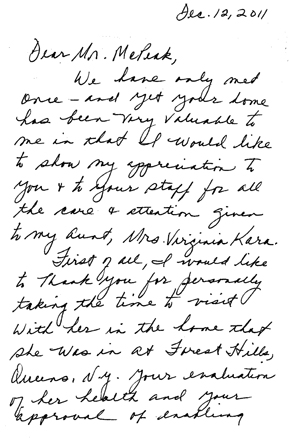 Dec. 12, 2011
Dear Mr. McPeak,
We have only met
once - and yet your home
has been very valuable to
me in that I would like
to show my appreciation to
you & to your staff for all
the care & attention given
to my Aunt, Mrs. Virginia Kara.
First of all, I would like
to thank you for personally
taking the time to visit
with her in the home that
she was in at Forest Hills,
Queens, N.Y. Your evaluation
of her health and your
approval of enabling